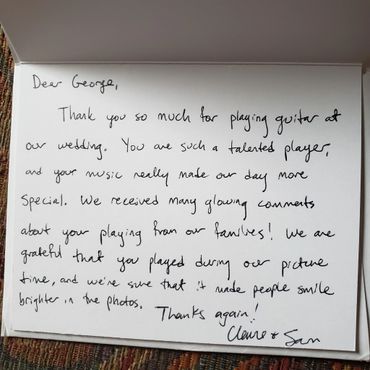 Dear George,
Thank you so much for playing guitar at
our wedding. You are such a talented player,
and your music really made our day more
special. We received many glowing comments
about your playing from our families! We are
grateful that you played during our picture
time, and we're sure that it made people smile
brighter in the photos. Thanks again!
Claire + Sam